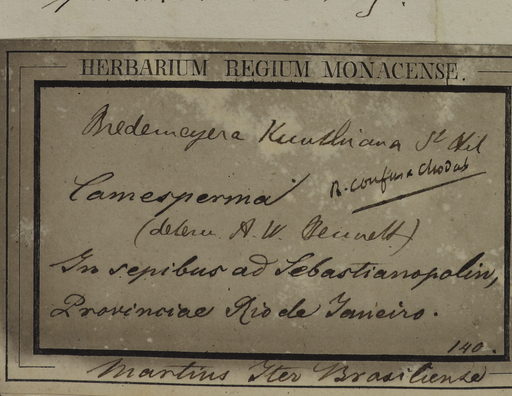 HERBARIUM REGIUM MONACENSE.
Bredemeyera Kunthiana St Hil
B. confusa Chodat
Comesperma
(determ A. W. Bennett)
In sepibus ad Sebastianopolin,
Provinciae Rio de Janeiro.
140.
Martius Iter Brasiliense